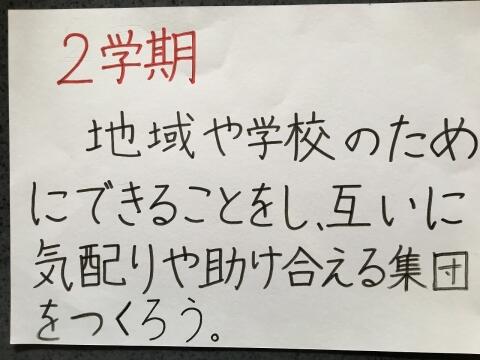 2学期
地域や学校のため
にできることをし、互いに
気配りや助け合える集団
をつくろう。